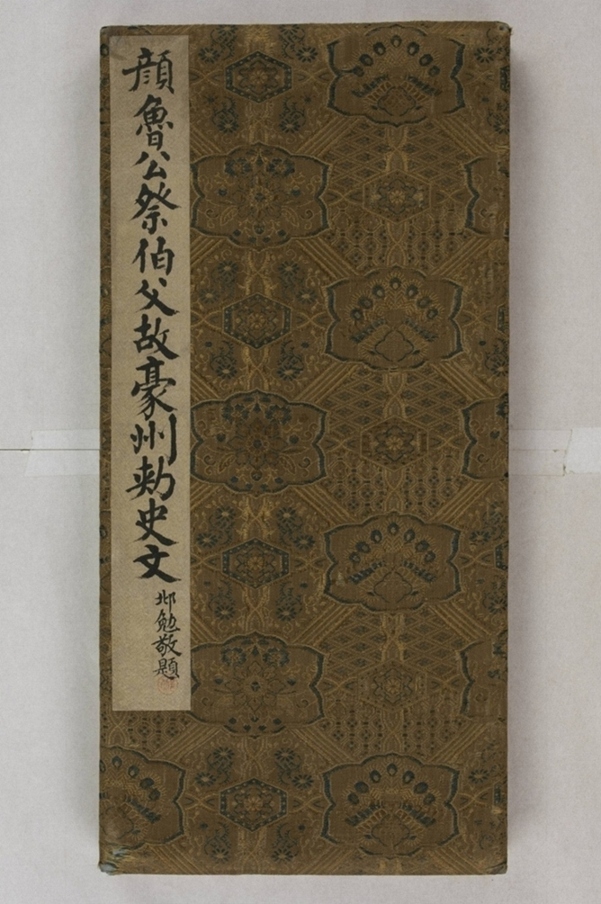 顔魯公祭伯父故豪州勅史文
邶勉敬題